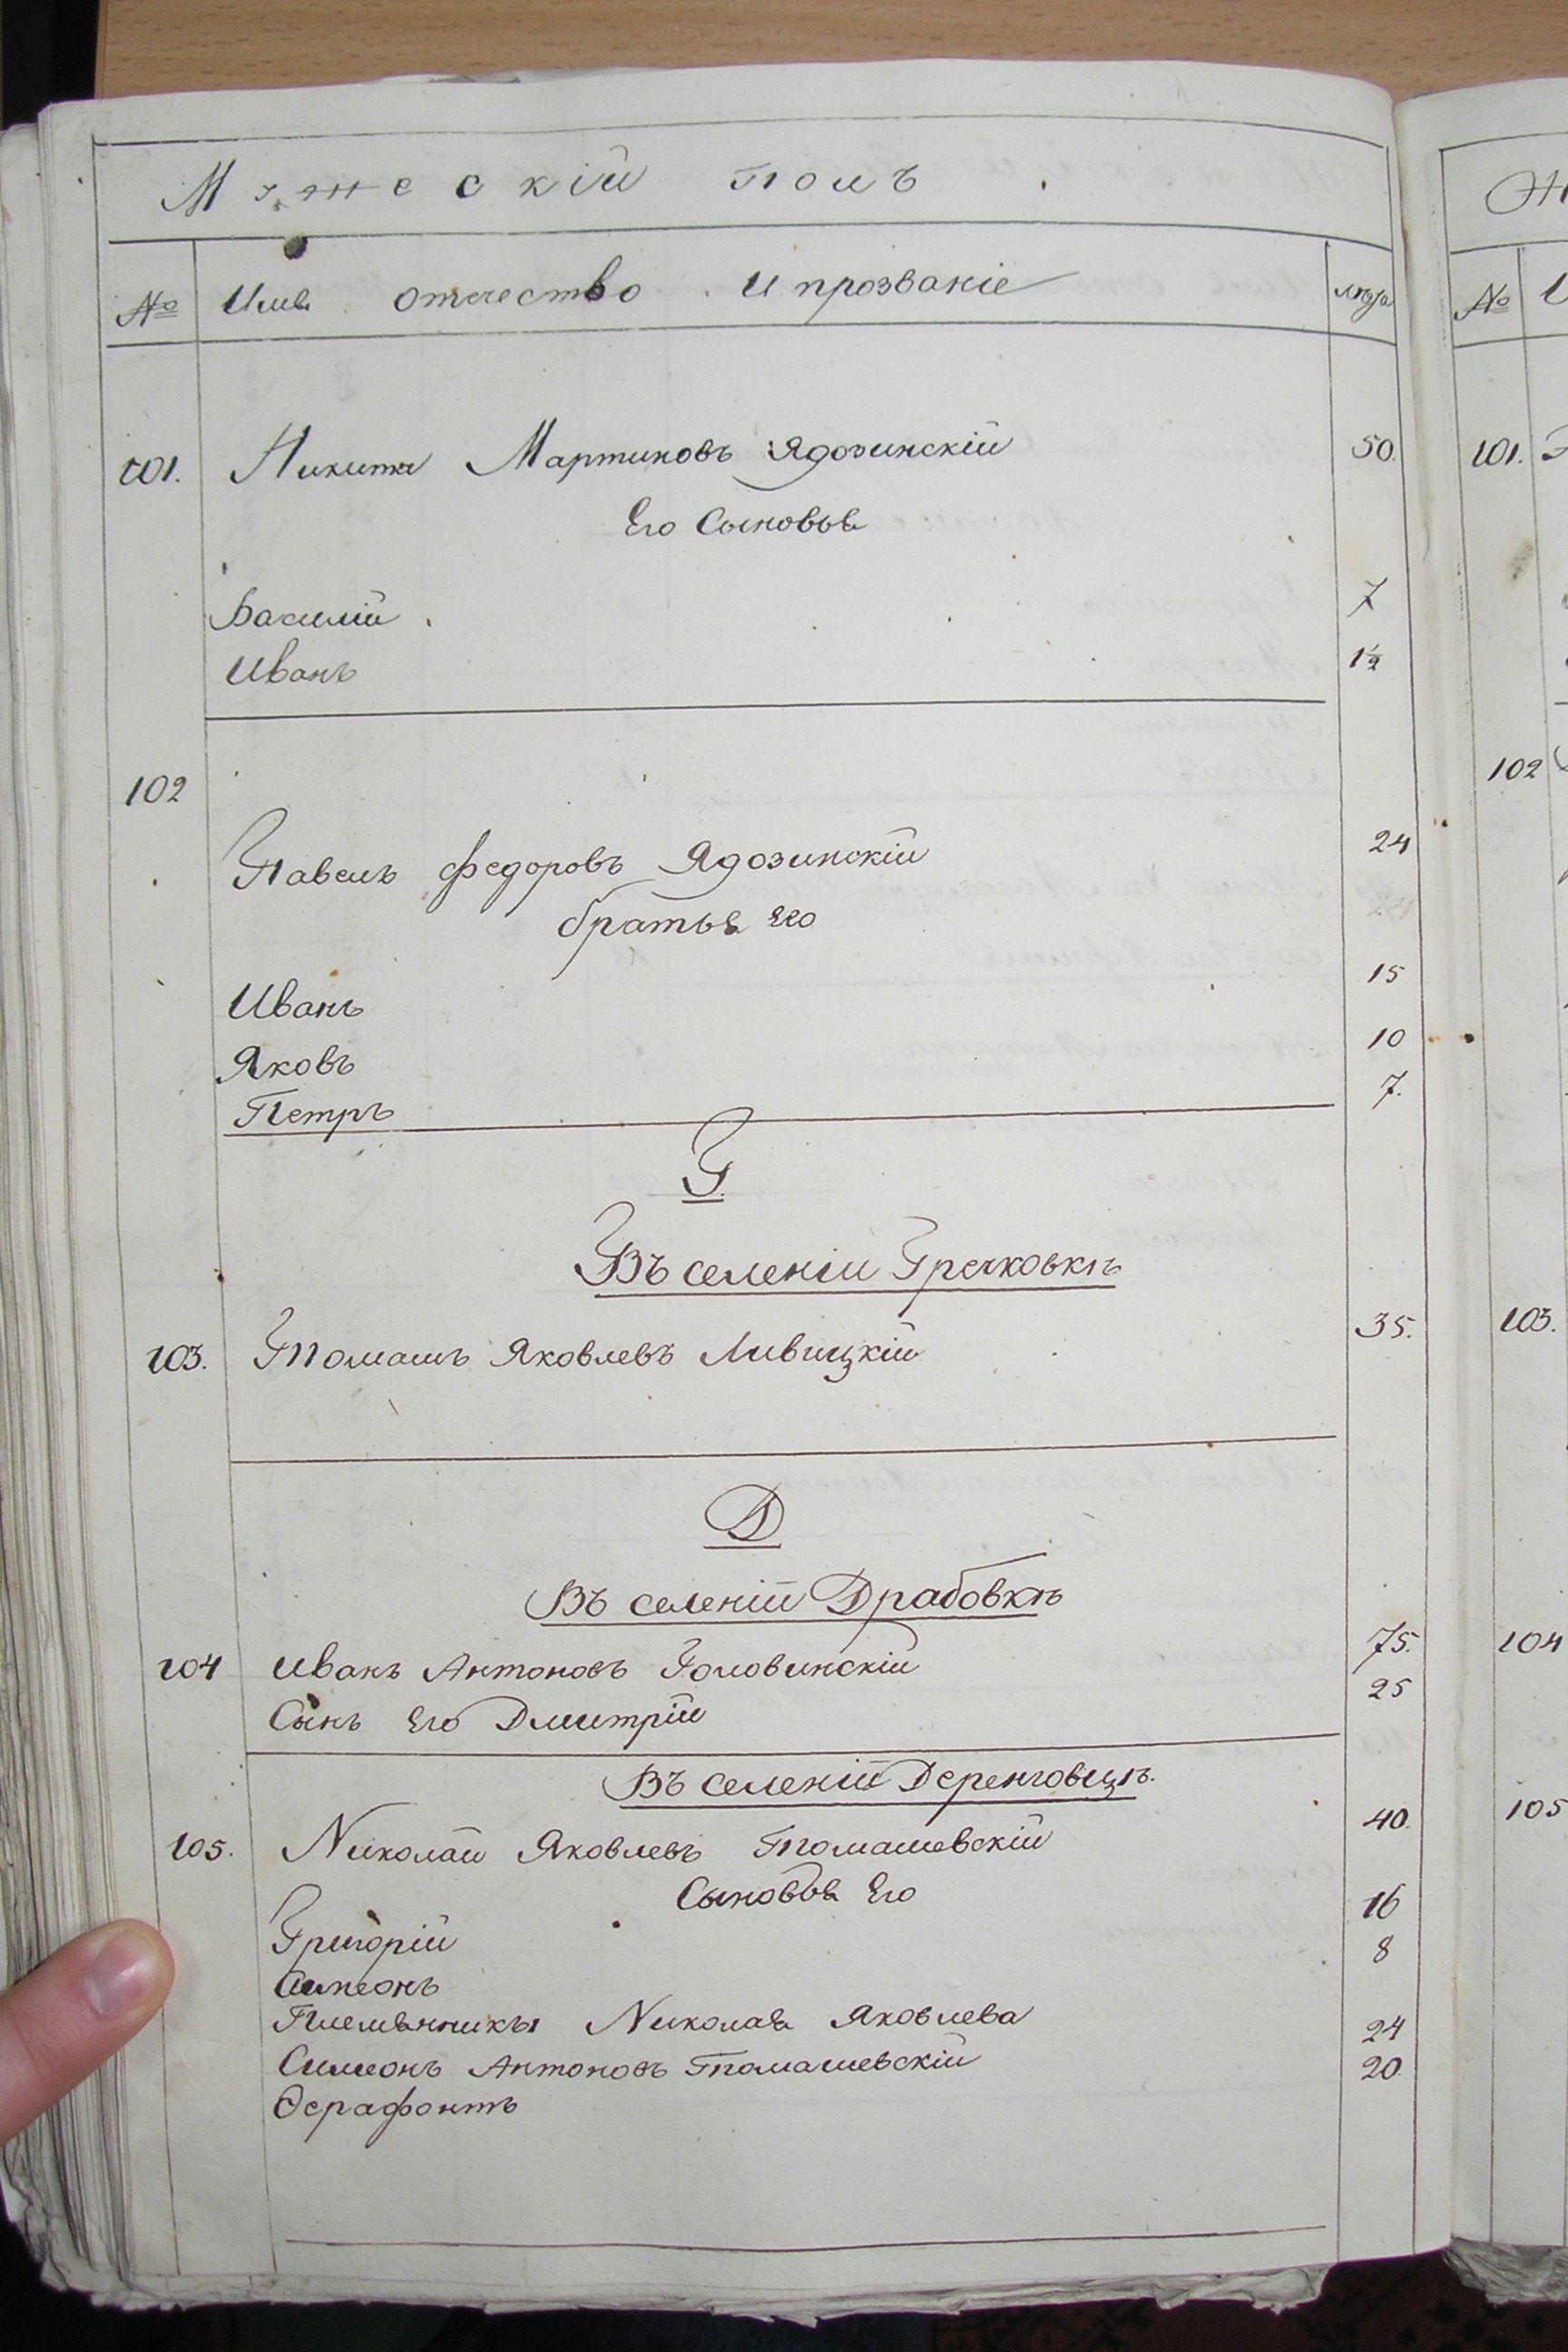 Мужескій полъ
№ Имя отечество и прозваніе лѣта
101. Никита Мартиновъ Ядозинскій 50.
Его Сыновья
Василій 7
Иванъ 1½
102
Павелъ Федоровъ Ядозинскій 24
братья его
Иванъ 15
Яковъ 10
Петръ 7.
Г.
Въ селеніи Гречковкѣ
103. Томашъ Яковлевъ Ливицкій 35.
Д
Въ селеній Драбовкѣ
104 Иванъ Антоновъ Головинскій 75.
Сынъ Его Дмитрій 25
Въ селеній Деренговцѣ.
105. Николай Яковлевъ Томашевскій 40.
Сыновья Его
Григорій 16
Симеонъ 8
Племянникы Николая Яковлева
Симеонъ Антоновъ Томашевскій 24
Ѳерафонтъ 20.
№
101.
102
103.
104
105